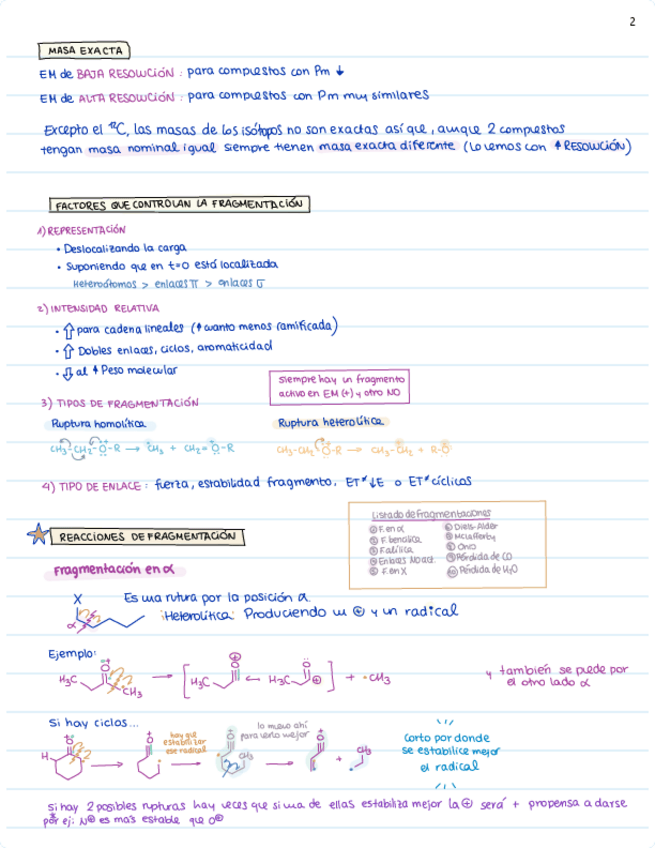 2
MASA EXACTA
EM de BAJA RESOLUCIÓN : para compuestos con Pm ↓
EM de ALTA RESOLUCIÓN : para compuestos con Pm muy similares
Excepto el ¹²C, las masas de los isótopos no son exactas así que, aunque 2 compuestos
tengan masa nominal igual siempre tienen masa exacta diferente (Lo vemos con ↑ RESOLUCIÓN)
FACTORES QUE CONTROLAN LA FRAGMENTACIÓN
1) REPRESENTACIÓN
• Deslocalizando la carga
• Suponiendo que en t=0 está localizada
Heteroátomos > enlaces π > enlaces σ
2) INTENSIDAD RELATIVA
• ⇧ para cadena lineales (↑ cuanto menos ramificada)
• ⇧ Dobles enlaces, ciclos, aromaticidad
• ⇩ al ↑ Peso molecular
Siempre hay un fragmento
activo en EM (+) y otro NO
3) TIPOS DE FRAGMENTACIÓN
Ruptura homolítica Ruptura heterolítica
CH₃-CH₂-O-R → CH₃ + CH₂=O-R CH₃-CH₂-O-R → CH₃-CH₂ + R-O
4) TIPO DE ENLACE : fuerza, estabilidad fragmento, ET* ↓E o ET* cíclicos
Listado de fragmentaciones
F. en α
F. bencílica
F. alílica
Enlaces No act.
F. en X
Diels-Alder
McLafferty
Onio
Pérdida de CO
Pérdida de H₂O
REACCIONES DE FRAGMENTACIÓN
Fragmentación en α
X
α
Es una rutura por la posición α.
Heterolítica: Produciendo un ⊕ y un radical
Ejemplo:
H₃C O CH₃ → [H₃C O ↔ H₃C O ⊕] + •CH₃
y también se puede por
el otro lado α
Si hay ciclos...
hay que
estabilizar
ese radical
lo muevo ahí
para verlo mejor
H O → O → O CH₃ → O + CH₃
Corto por donde
se estabilice mejor
el radical
Si hay 2 posibles rupturas hay veces que si una de ellas estabiliza mejor la ⊕ será + propensa a darse
por ej: N⊕ es más estable que O⊕